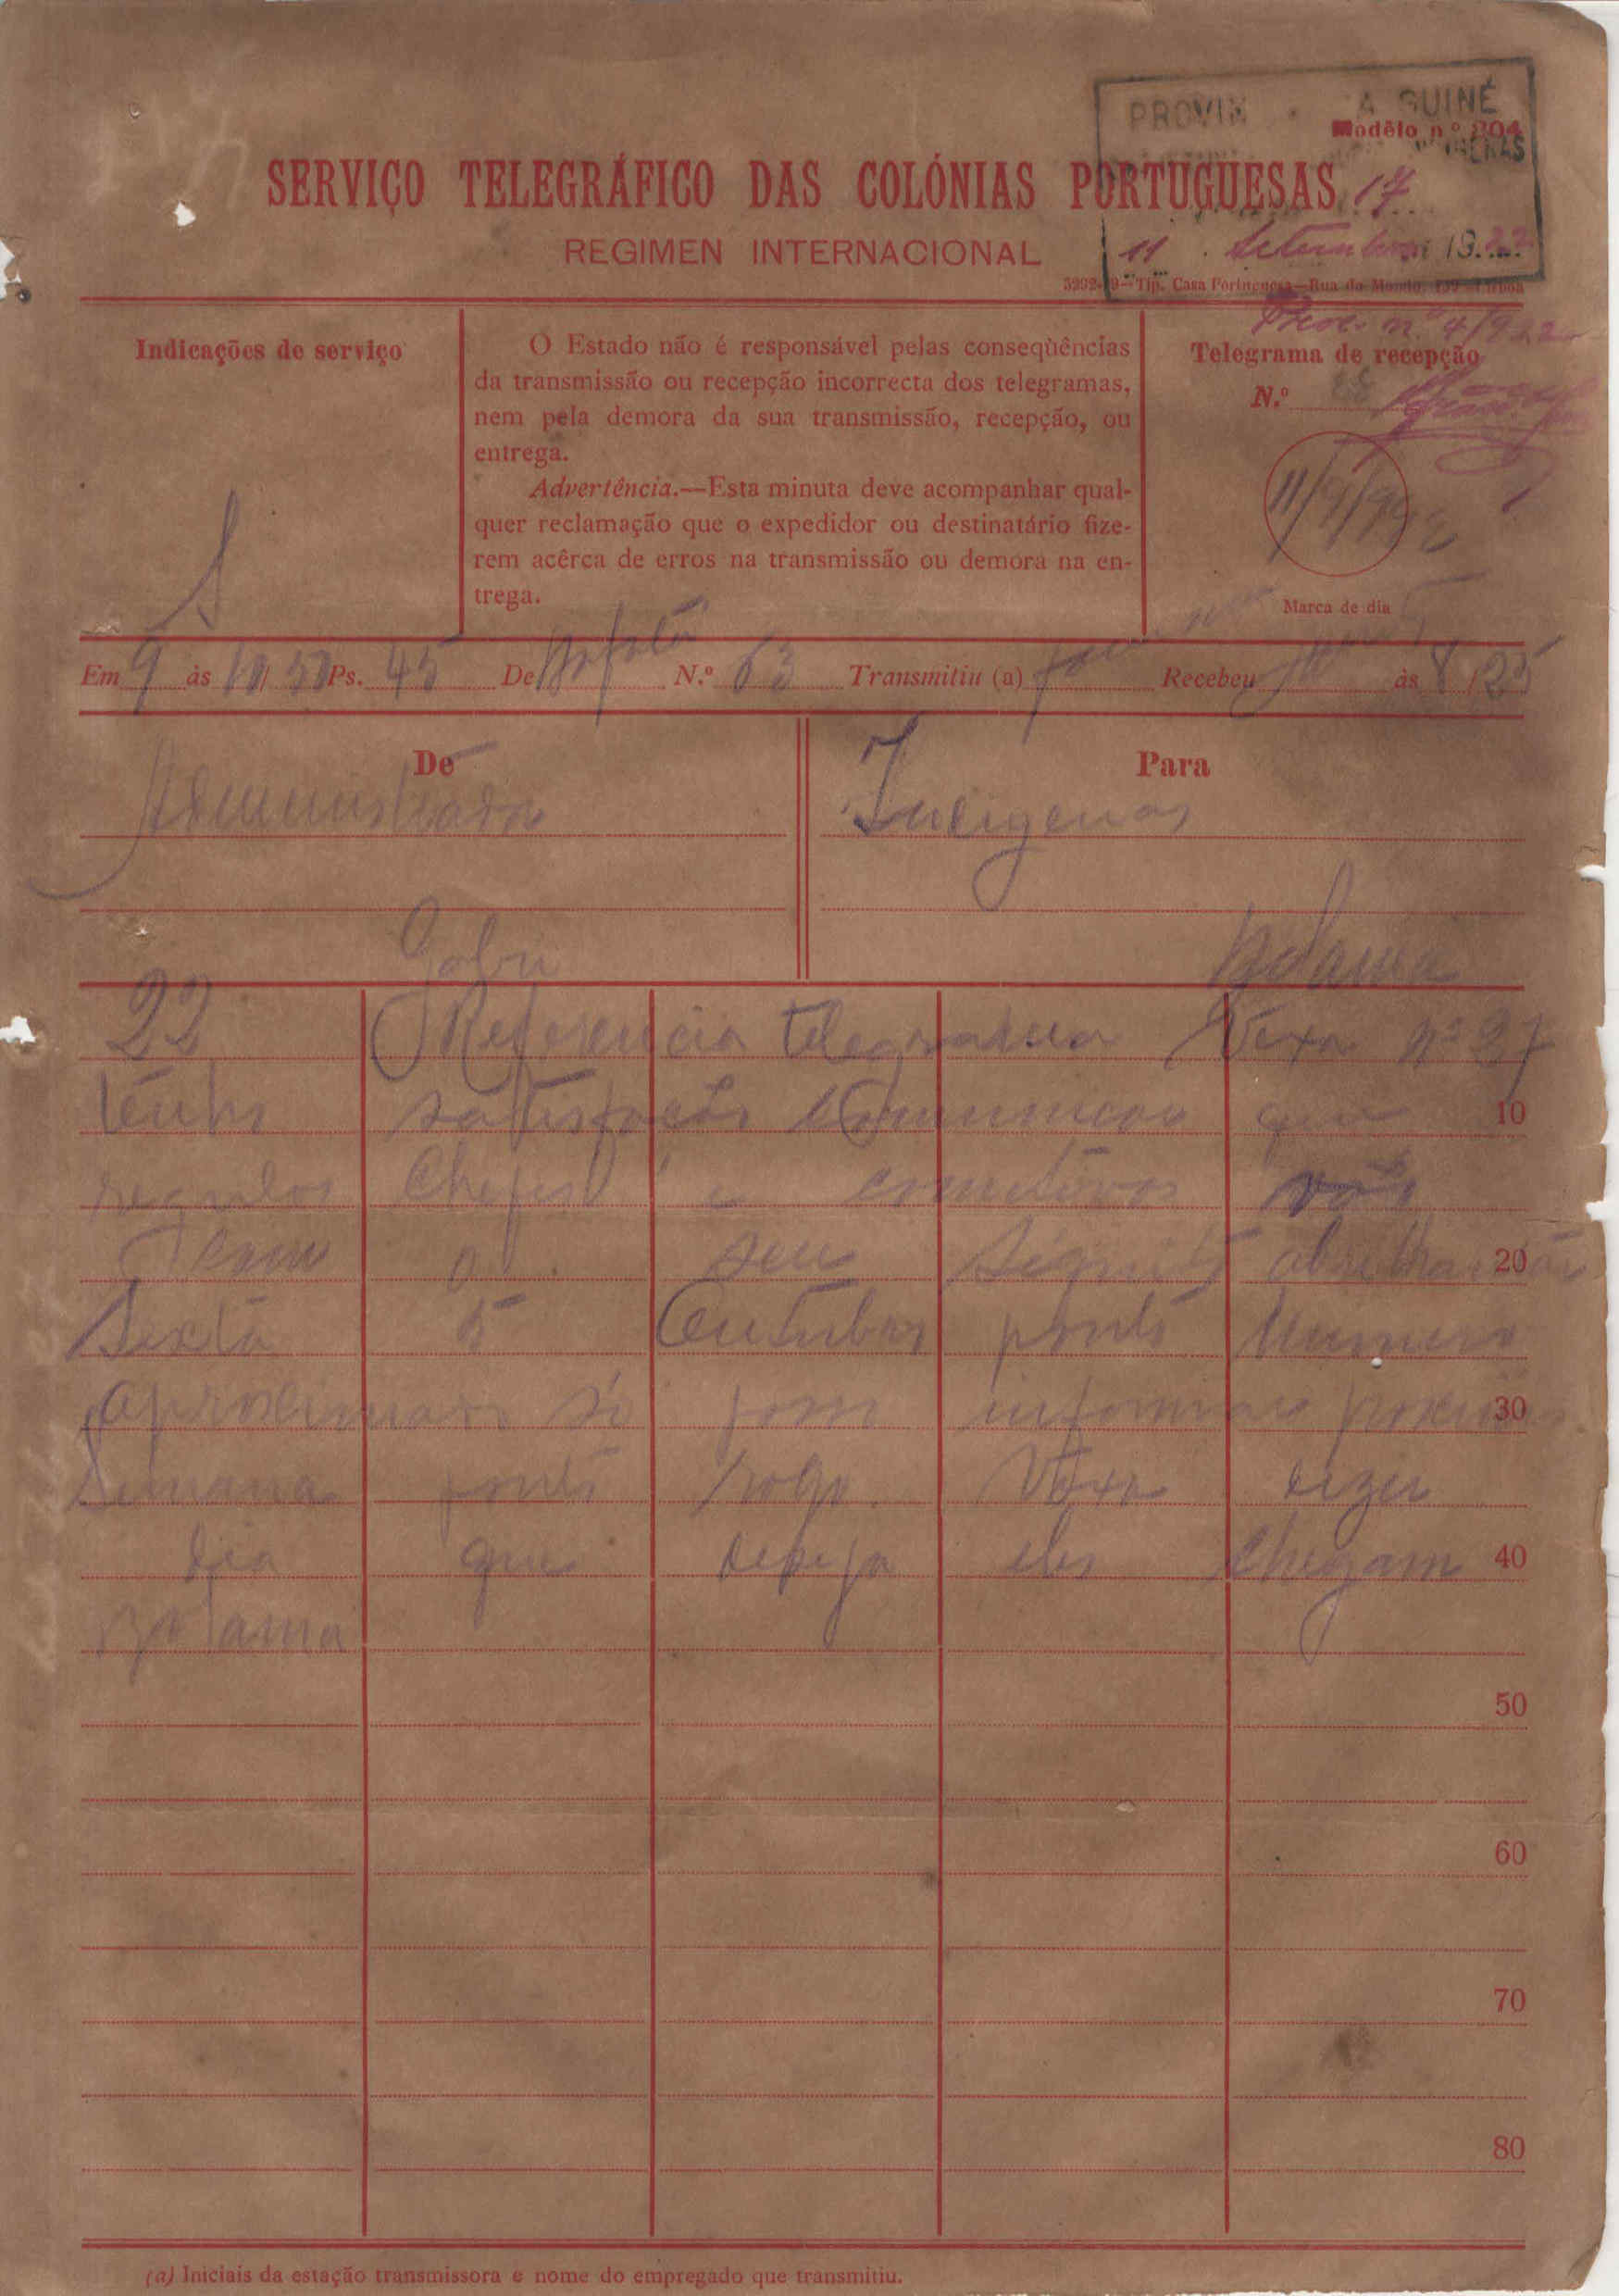 PROVIN A GUINÉ
Modêlo n.º 804
SERVIÇO TELEGRÁFICO DAS COLÓNIAS PORTUGUESAS
17
REGIMEN INTERNACIONAL
11 Setembro 1922
Proc. n.º 4/922
Indicações de serviço
S
O Estado não é responsável pelas conseqùências
da transmissão ou recepção incorrecta dos telegramas,
nem pela demora da sua transmissão, recepção, ou
entrega.
Advertência.—Esta minuta deve acompanhar qual-
quer reclamação que o expedidor ou destinatário fize-
rem acêrca de erros na transmissão ou demora na en-
trega.
Telegrama de recepção
N.º 88
11/9/922
Marca de dia
Em 9 às 10/50 Ps. 45 De Bafatá N.º 63 Transmitiu (a) Recebeu às 8/25
De
Administrador
Gabu
Para
Indigenas
Bolama
22 Referencia telegrama Vexa nº 37
tenho satisfação comunicar que 10
regulos chefes e comitivas vão
com o seu 20
Sexta 5 Outubro ponto Numero
aproximado só posso informar proxima 30
Semana ponto rogo Vexa dizer
dia que deseja eles chegam 40
Bolama
50
60
70
80
(a) Iniciais da estação transmissora e nome do empregado que transmitiu.